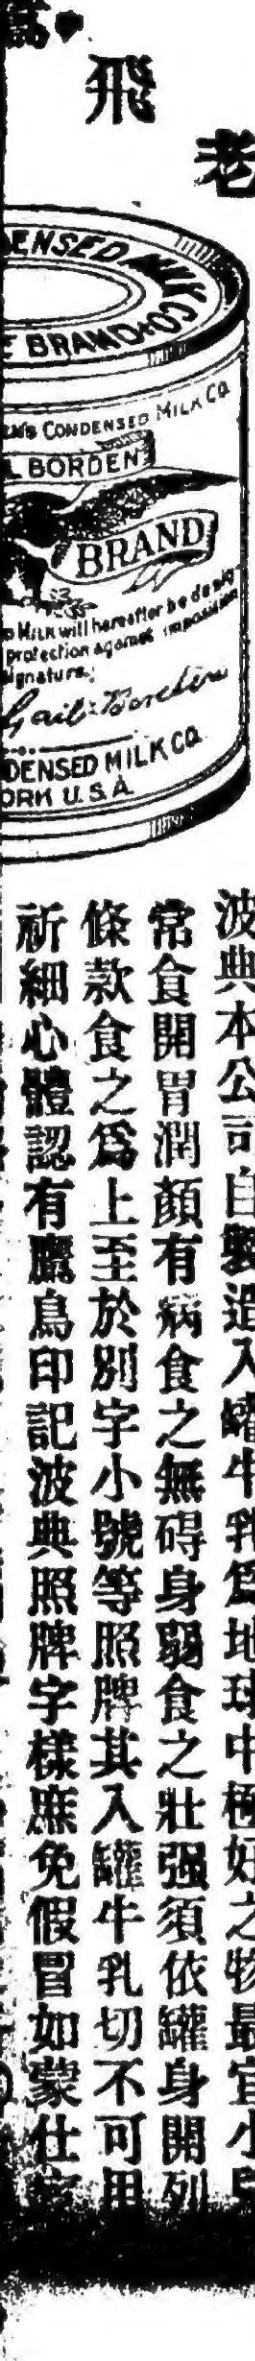 老
飛
ENSED MILK CO
BRAND
CONDENSED MILK CO.
BORDEN
BRAND
Milk will hereafter be desig
protection against imposition
signature:
Gail Borden
DENSED MILK CO.
ORK U.S.A.
波典本公司自製造入罐牛乳爲地球中極好之物最宜小
常食開胃潤顏有病食之無碍身弱食之壯强須依罐身開列
條款食之爲上至於別字小號等照牌其入罐牛乳切不可用
祈細心體認有鷹鳥印記波典照牌字樣庶免假冒如蒙仕